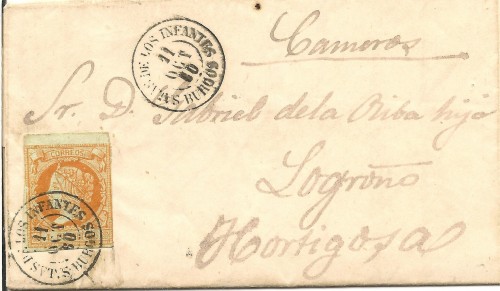 SALAS DE LOS INFANTES BURGOS
11
OCT
60
Cameros
Sr. D. Gabriel de la Riba hijo
CORREOS
Logroño
SALAS DE LOS INFANTES BURGOS
11
OCT
60
Hortigosa